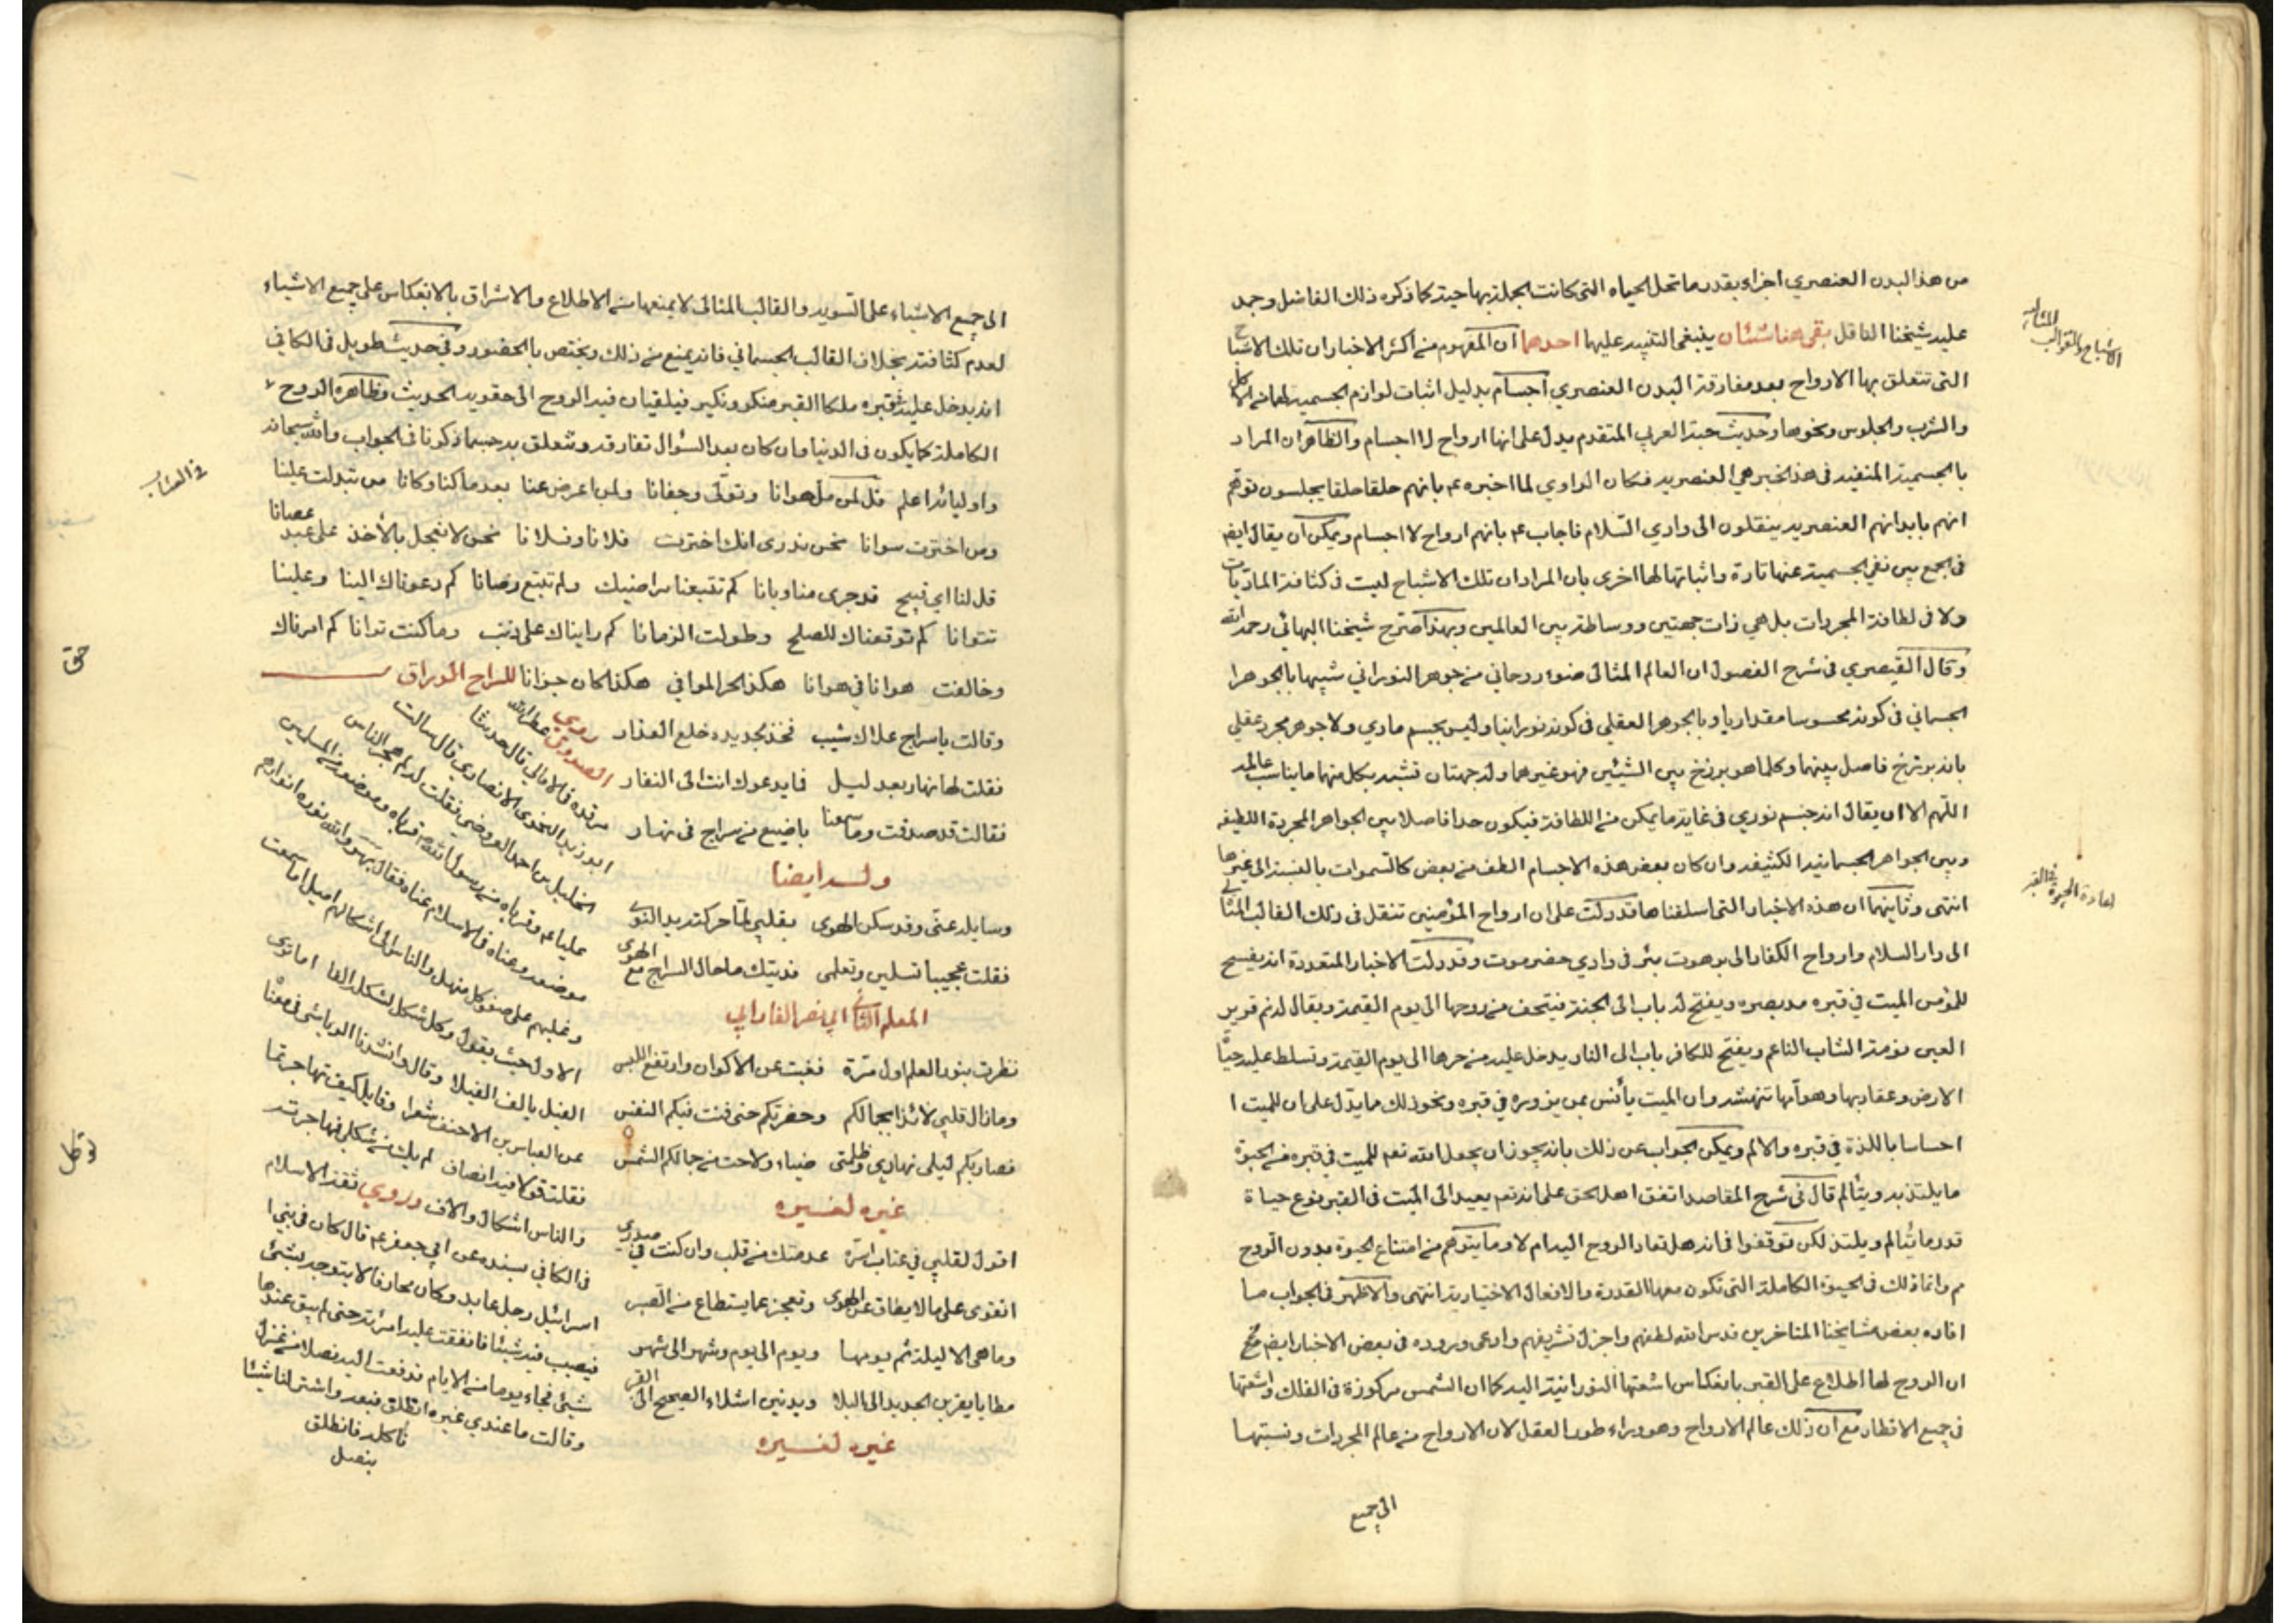 من هذا البدن العنصري اجزاء بقدر ما تحل الحياه التى كانت الجملة بها حية كما ذكره ذلك الفاضل وحمل
عليه شيخنا الناقل بقى هنا شيئان ينبغى التنبيه عليها احدهما ان المفهوم من اكثر الاخبار ان تلك الاشباح
التى تتعلق بها الارواح بعد مفارقة البدن العنصري اجسام بدليل اثبات لوازم الجسمية لها من الاكل
والشرب والجلوس ونحوها وحديث حبة العرني المتقدم يدل على انها ارواح لا اجسام والظاهر ان المراد
بالجسمية المنفية في هذا الخبر هي العنصريه فكان الراوي لما اخبره ع بانهم حلقا حلقا يجلسون توهم
انهم بابدانهم العنصريه ينتقلون الى وادي السلام فاجاب ع بانهم ارواح لا اجسام ويمكن ان يقال ايضا
فى الجمع بين نفي الجسمية عنها تارة واثباتها لها اخرى بان المراد ان تلك الاشباح ليست فى كثافة الماديات
ولا فى لطافة المجردات بل هي ذات جهتين وواسطة بين العالمين وبهذا صرح شيخنا البهائي رحمه الله
وقال القيصري فى شرح الفصول ان العالم المثالى هو روحاني من جوهر النوراني شبيها بالجوهر ا
لجسماني فى كونه محسوسا مقداريا وبالجوهر العقلي فى كونه نورانيا وليس بجسم مادي ولا جوهر مجرد عقلي
بانه برزخ فاصل بينهما وكلما هو برزخ بين الشيئين فهو غيرهما وله جهتان تشبه بكل منهما ما يناسب عالمه
اللهم الا ان يقال انه جسم نوري فى غاية ما يمكن من اللطافة فيكون حدا فاصلا بين الجواهر المجردة اللطيفه
وبين الجواهر الجسمانية الكثيفه وان كان بعض هذه الاجسام الطف من بعض كالسموات بالنسبة الى غيرها
انتهى وثانيهما ان هذه الاخبار التى اسلفناها قد دلت على ان ارواح المؤمنين تنتقل فى ذلك القالب المثالي
الى دار السلام وارواح الكفار الى برهوت بئر فى وادي حضرموت وقد دلت الاخبار المتعددة انه يفسح
للمؤمن الميت في قبره مد بصره ويفتح له باب الى الجنة فيتحف من روحها الى يوم القيمة ويقال له نم قرير
العين نومة الشاب الناعم ويفتح للكافر باب الى النار يدخل عليه من حرها الى يوم القيمة وتسلط عليه حيات
الارض وعقاربها وهوامها تنهشه وان الميت يأنس بمن يزوره في قبره ونحو ذلك مما يدل على ان للميت ا
احساسا باللذة في قبره والالم ويمكن الجواب عن ذلك بانه يجوز ان يجعل الله تعم للميت في قبره من الحيوة
ما يلتذ به ويتألم قال فى شرح المقاصد اتفق اهل الحق على انه تعم يعيد الى الميت فى القبر نوع حياة
قدر ما يتألم ويلتذ لكن توقفوا فى انه هل تعاد الروح اليه ام لا وما يتوهم من امتناع الحيوة بدون الروح
م وانما ذلك فى الحيوة الكاملة التى تكون معها القدرة والافعال الاختيارية انتهى والاظهر فى الجواب ما
افاده بعض مشايخنا المتاخرين قدس الله لطفهم واجزل تشريفهم وادعى وروده فى بعض الاخبار ايضا
ان الروح لها اطلاع على القبر بانعكاس اشعتها النورانية اليه كما ان الشمس مركوزة فى الفلك واشعتها
فى جميع الاقطار مع ان ذلك عالم الارواح وهو وراء طور العقل لان الارواح من عالم المجردات ونسبتها
الى جميع
الاشباح والقوالب المثالية
اعادة الحيوة في القبر
الى جميع الاشياء على السويه والقالب المثالى لا يمنعها من الاطلاع والاشراق بالانعكاس على جميع الاشياء
لعدم كثافته بخلاف القالب الجسماني فانه يمنع من ذلك ويختص بالحضور وفي حديث طويل فى الكافي
انه يدخل عليه في قبره ملكا القبر منكر ونكير فيلقيان فيه الروح الى حقويه الحديث وظاهره الروح
الكاملة كما يكون فى الدنيا وان كان بعد السؤال تفارقه وتتعلق بجسم ما ذكرنا فى الجواب والله سبحانه
واوليائه اعلم قل لمن مل هوانا وتولى وجفانا ولمن اعرض عنا بعد ما كنا وكانا من تبدلت علينا
ومن اخترت سوانا نحن ندرى انك اخترت فلانا وفلانا نحن لا نعجل بالأخذ على عبد عصانا
قل لنا اي قبيح قد جرى منا وبانا كم تتبعنا مراضيك ولم تتبع رضانا كم دعوناك الينا وعلينا
تتوانا كم توقعناك للصلح وطولت الزمانا كم رايناك على ذنب وما كنت ترانا كم امرناك
وخالفت هوانا في هوانا هكذا الحر الموافي هكذا كان جزانا للسراج الوراق
وقالت يا سراج علاك شيب فخذ بجديده خلع العذار
فقلت لها نهار بعد ليل فما يدعوك انت الى النفار
فقالت قد صدقت وما سمعنا باضيع من سراج فى نهار
وله ايضا
وسايلة عنى وقد سكن الهوى بقلبي لما حركته يد النوى
فقلت عجيبا تسلين وتعلمى فديتك ما حال السراج مع الهوى
المعلم الثاني ابي نصر الفارابي
نظرت بنور العلم اول مرة فغبت عن الاكوان وارتفع اللبس
وما زال قلبي لائذا بجمالكم وحضرتكم حتى فنت فيكم النفس
فصار بكم ليلى نهاري وظلمتى ضياء ولاحت من جمالكم الشمس
غيره لغيره
اقول لقلبي في عتاب اسره عدمتك من قلب وان كنت في صدري
اتقوى على ما لا يطاق من الهوى وتعجز عما يستطاع من الصبر
وما هى الا ليلة ثم يومها ويوم الى يوم وشهر الى شهر
مطايا يقربن الجديد الى البلا ويدنين اشلاء الصحيح الى القبر
غيره لغيره
روي الصدوق عطر الله
مرقده فى الامالي قال حدثنا
ابو زيد النحوى الانصاري قال سالت
الخليل بن احمد العروضى فقلت لم هجر الناس
عليا ع وقرباه من رسول الله ص قرباه وموضعه من المسلمين
موضعه وعناه فى الاسلام عناه فقال بهر والله نوره انوارهم
وغلبهم على صفو كل منهل والناس الى اشكالهم اميل اما سمعت
الاول حيث يقول وكل شكل لشكله الفا اما ترى
الفيل يالف الفيلا وقال وانشدنا الرياشى فى معناه
عن العباس بن الاحنف شعرا وقايل كيف تهاجرتما
فقلت قولا فيه انصاف لم يك من شكلي فهاجرته
والناس اشكال والاف وروي ثقة الاسلام
فى الكافي بسنده عن ابي جعفر ع قال كان في بني ا
سرائيل رجل عابد وكان محارفا لا يتوجه بشئ
فيصيب فيه شيئا فانفقت عليه امرئته حتى لم يبق عندها
شيئ فجاء يوما من الايام فدفعت اليه نصلا من غزل
وقالت ما عندي غيره انطلق فبعه واشتر لنا شيئا
نأكله فانطلق
بنصل